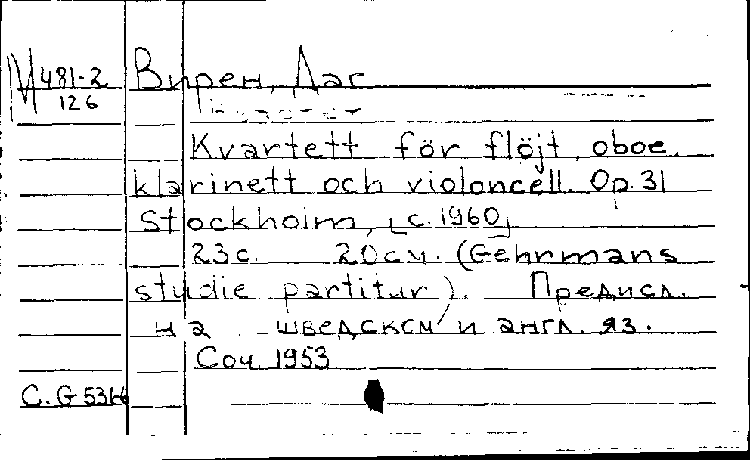 М 481-2 Вирен, Даг
126
Kvartett för flöjt, oboe,
klarinett och violoncell. Op. 31
Stockholm, [c. 1960]
23 с. 20 см. (Gehrmans
studie partitur). Предисл.
на шведском и англ. яз.
Соч. 1953
C. G 5316